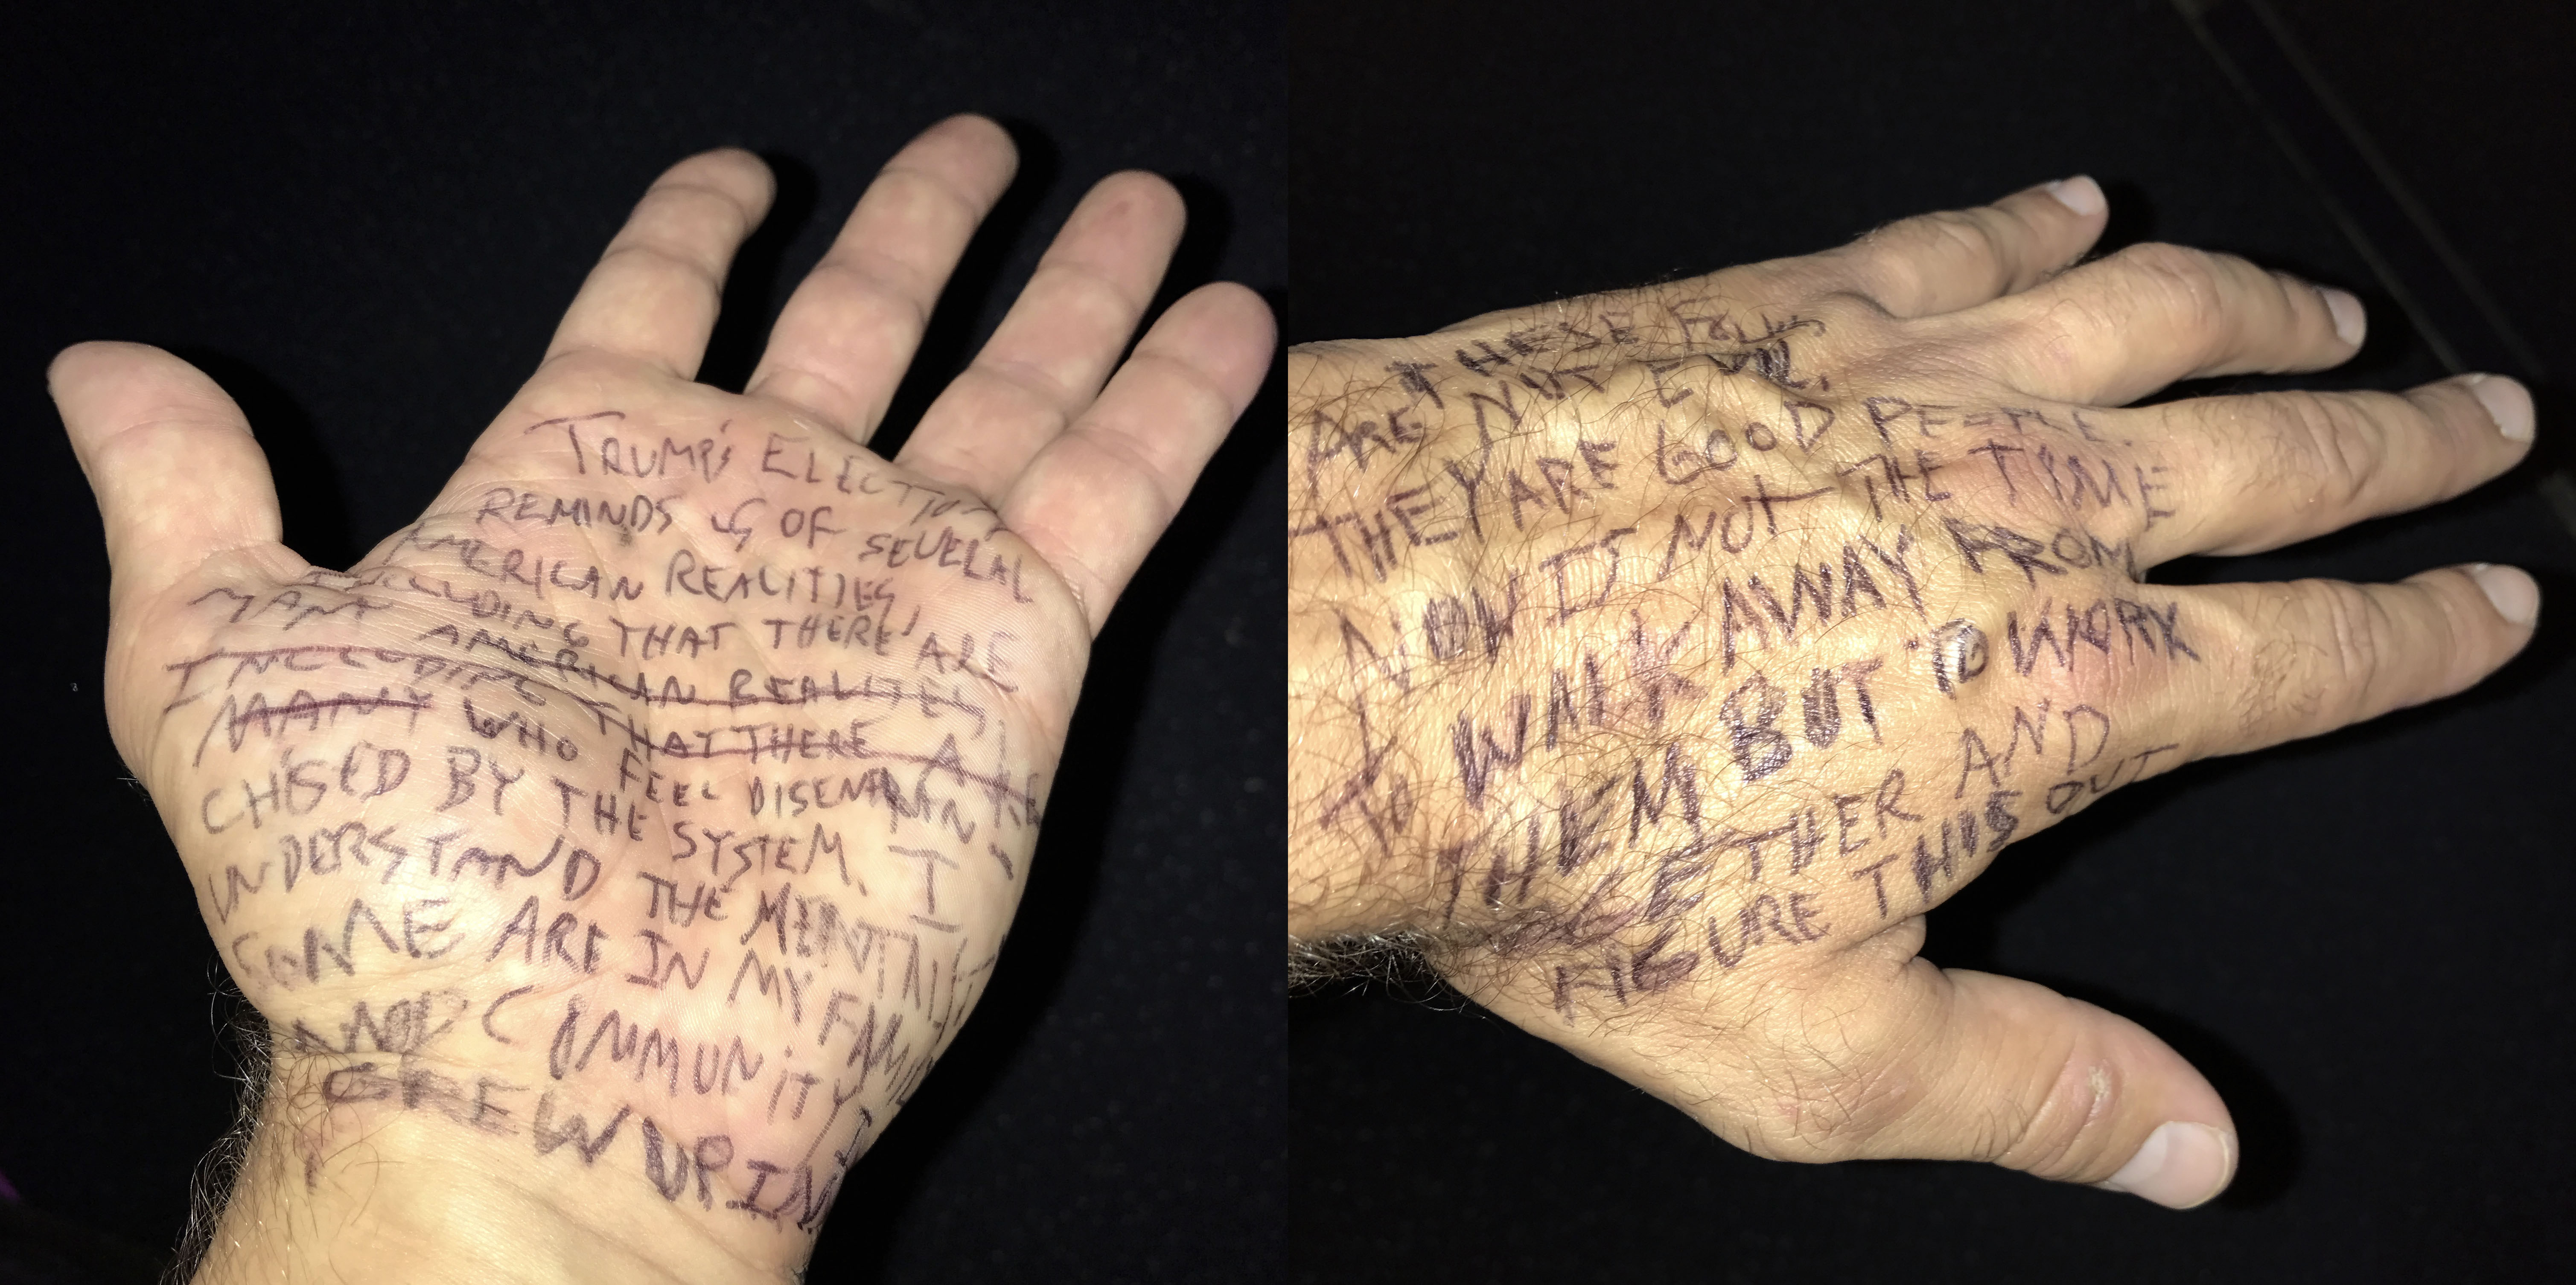 TRUMP'S ELECTION
REMINDS US OF SEVERAL
AMERICAN REALITIES,
INCLUDING THAT THERE ARE
MANY AMERICAN REALITIES,
INCLUDING THAT THERE ARE
MANY WHO FEEL DISENFRAN-
CHISED BY THE SYSTEM. I
UNDERSTAND THE MENTALITY
SOME ARE IN MY FAMILY
AND COMMUNITY I
GREW UP IN
THESE FOLKS
ARE NOT EVIL,
THEY ARE GOOD PEOPLE.
NOW IS NOT THE TIME
TO WALK AWAY FROM
THEM BUT TO WORK
TOGETHER AND
FIGURE THIS OUT